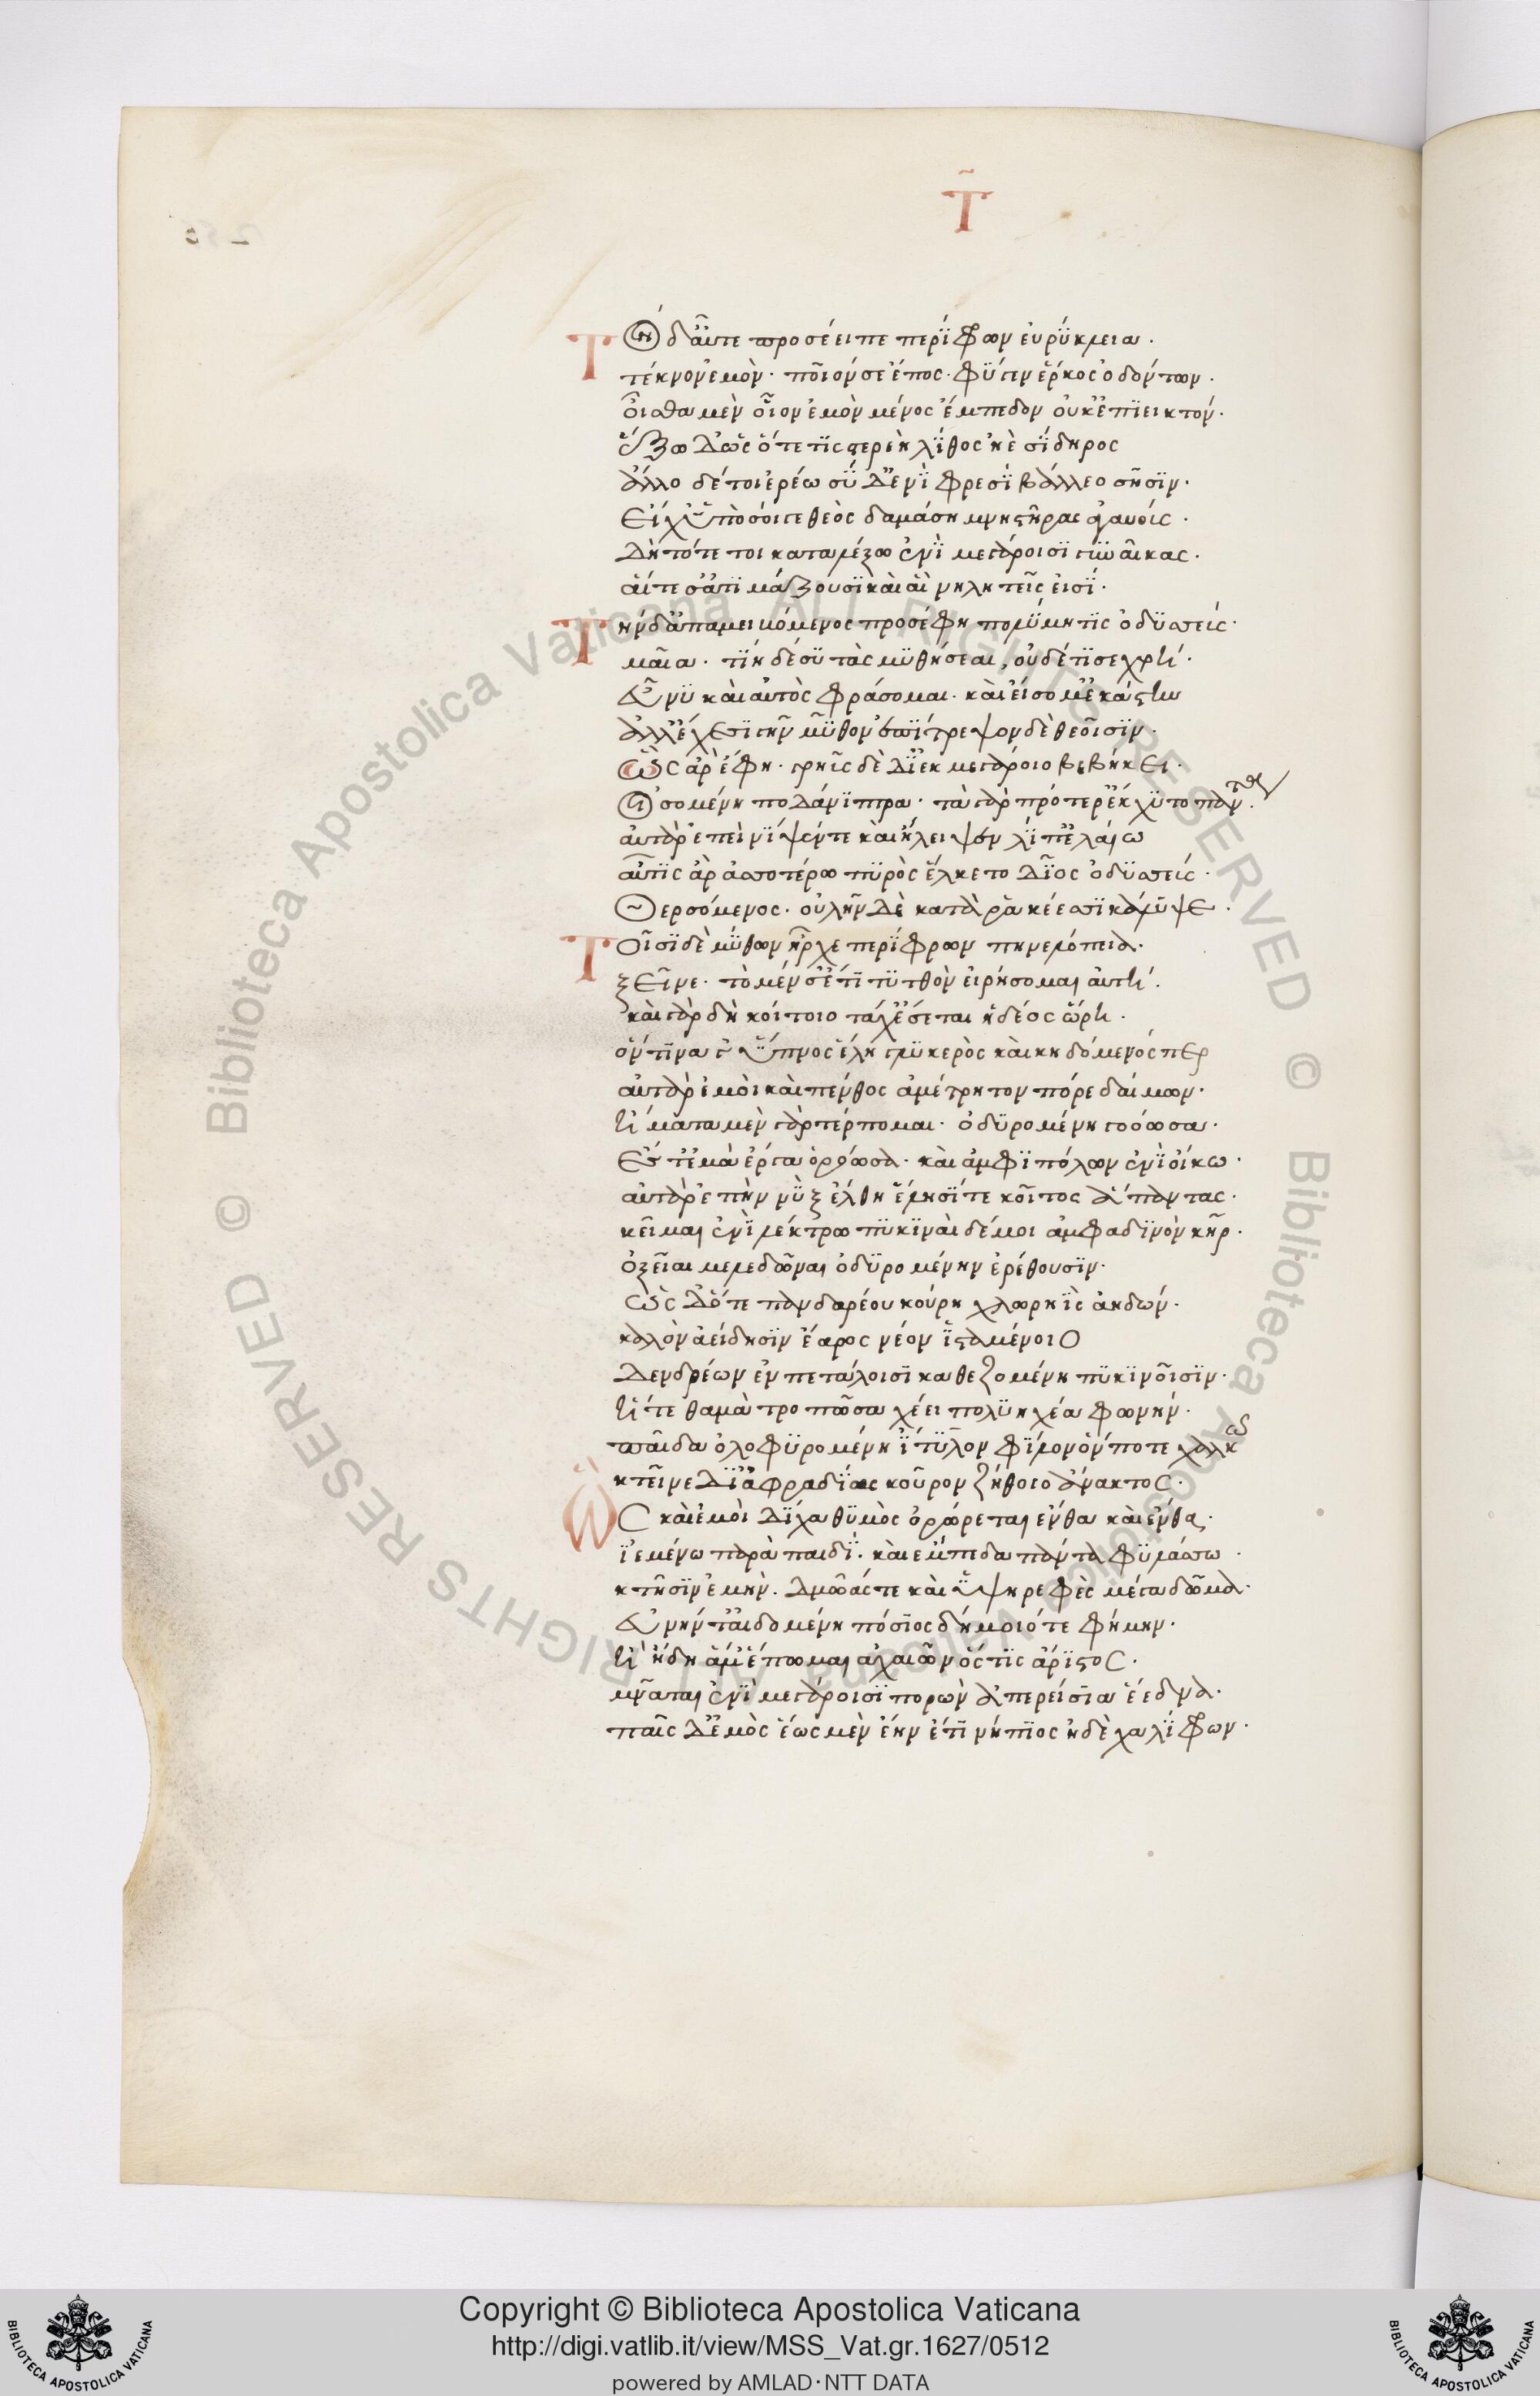 Τ̃
Τὸν δ᾽ αὖτε προσέειπε περίφρων εὐρύκλεια·
τέκνον ἐμὸν· ποῖόν σε ἔπος· φύγεν ἕρκος ὀδόντων·
οἶσθα μὲν οἷον ἐμὸν μένος ἔμπεδον οὐκ ἐπιεικτόν·
ἕξω δ᾽ ὡς ὅτε τίς στερεὴ λίθος ἠὲ σίδηρος
ἄλλο δέ τοι ἐρέω σὺ δ᾽ ἐνὶ φρεσὶ βάλλεο σῆσιν·
Εἴ χ᾽ ὑπὸ σόι γε θεὸς δαμάση μνηστῆρας ἀγαυούς·
Δὴ τότε τοι καταλέξω ἐνὶ μεγάροισι γυναῖκας·
αἵ τε σ᾽ ἀτιμάζουσι καὶ αἳ νηλητεῖς εἰσί·
Τὴν δ᾽ ἀπαμειβόμενος προσέφη πολύμητις ὀδυσσεύς·
μαῖα· τίη δὲ σὺ τὰς μυθήσεαι, οὐδέ τί σε χρή·
εὖ νυ καὶ αὐτὸς φράσομαι· καὶ εἴσομ᾽ ἑκάστην
ἀλλ᾽ ἔχε σιγῆ μῦθον ἐπίτρεψον δὲ θεοῖσιν·
Ὣς ἄρ᾽ ἔφη· γρηῢς δὲ δι᾽ ἐκ μεγάροιο βεβήκει·
Οἰσομένη ποδάνιπτρα· τὰ γὰρ πρότερ᾽ ἔκχυτο πάντα·
αὐτὰρ ἐπεὶ νίψέν τε καὶ ἤλειψεν λίπ᾽ ἐλαίω
αὖτις ἄρ᾽ ἀσσοτέρω πυρὸς ἕλκετο δῖος ὀδυσσεύς·
Θερσόμενος· οὐλὴν δὲ κατὰ ῥακέεσσι κάλυψε·
Τοῖσι δὲ μύθων ἦρχε περίφρων πηνελόπεια·
ξεῖνε· τὸ μέν σ᾽ ἔτι τυτθὸν εἰρήσομαι αὐτή·
καὶ γὰρ δὴ κοίτοιο τάχ᾽ ἔσεται ἡδέος ὥρη·
ὅν τινα γ᾽ ὕπνος ἕλη γλυκερὸς καὶ κηδόμενόν περ
αὐτὰρ ἐμοὶ καὶ πένθος ἀμέτρητον πόρε δαίμων·
ἤματα μὲν γὰρ τέρπομαι· ὀδυρομένη γοόωσα·
Ἔς τ᾽ ἐμὰ ἔργα ὁρόωσα· καὶ ἀμφιπόλων ἐνὶ οἴκω·
αὐτὰρ ἐπὴν νὺξ ἔλθη ἕλησί τε κοῖτος ἅπαντας·
κεῖμαι ἐνὶ λέκτρω πυκιναὶ δέ μοι ἀμφ᾽ ἀδινὸν κῆρ·
ὀξεῖαι μελεδῶναι ὀδυρομένην ἐρέθουσιν·
ὡς δ᾽ ὅτε πανδαρέου κούρη χλωρηῒς ἀηδών·
καλὸν ἀείδησιν ἔαρος νέον ἱσταμένοιο
Δενδρέων ἐν πετάλοισι καθεζομένη πυκινοῖσιν·
ἥ τε θαμὰ τροπῶσα χέει πολυηχέα φωνήν·
παῖδα ὀλοφυρομένη ἴτυλον φίλον ὅν ποτε χαλκῶ
κτεῖνε δι᾽ ἀφραδίας κοῦρον ζήθοιο ἄνακτος·
Ὣς καὶ ἐμοὶ δίχα θυμὸς ὀρώρεται ἔνθα καὶ ἔνθα·
ἠὲ μένω παρὰ παιδί· καὶ ἔμπεδα πάντα φυλάσσω·
κτῆσιν ἐμὴν· δμῶάς τε καὶ ὑψηρεφὲς μέγα δῶμα·
εὐνήν τ᾽ αἰδομένη πόσιος δήμοιό τε φήμην·
ἢ ἤδη ἅμ᾽ ἕπωμαι ἀχαιῶν ὅς τις ἄριστος·
μνᾶται ἐνὶ μεγάροισι πορὼν ἀπερείσια ἕεδνα·
παῖς δ᾽ ἐμὸς ἕως μὲν ἔην ἔτι νήπιος ἠδὲ χαλίφρων·
Copyright © Biblioteca Apostolica Vaticana
http://digi.vatlib.it/view/MSS_Vat.gr.1627/0512
powered by AMLAD·NTT DATA